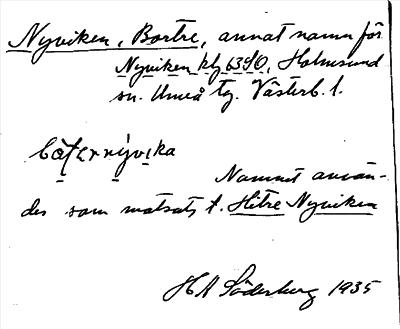 Nyviken, Bortre, annat namn för
Nyviken klj 6390, Holmsund
sn. Umeå tg. Västerb. l.
Namnet använ-
des som motsats t. Hitre Nyviken
H A Söderberg 1935